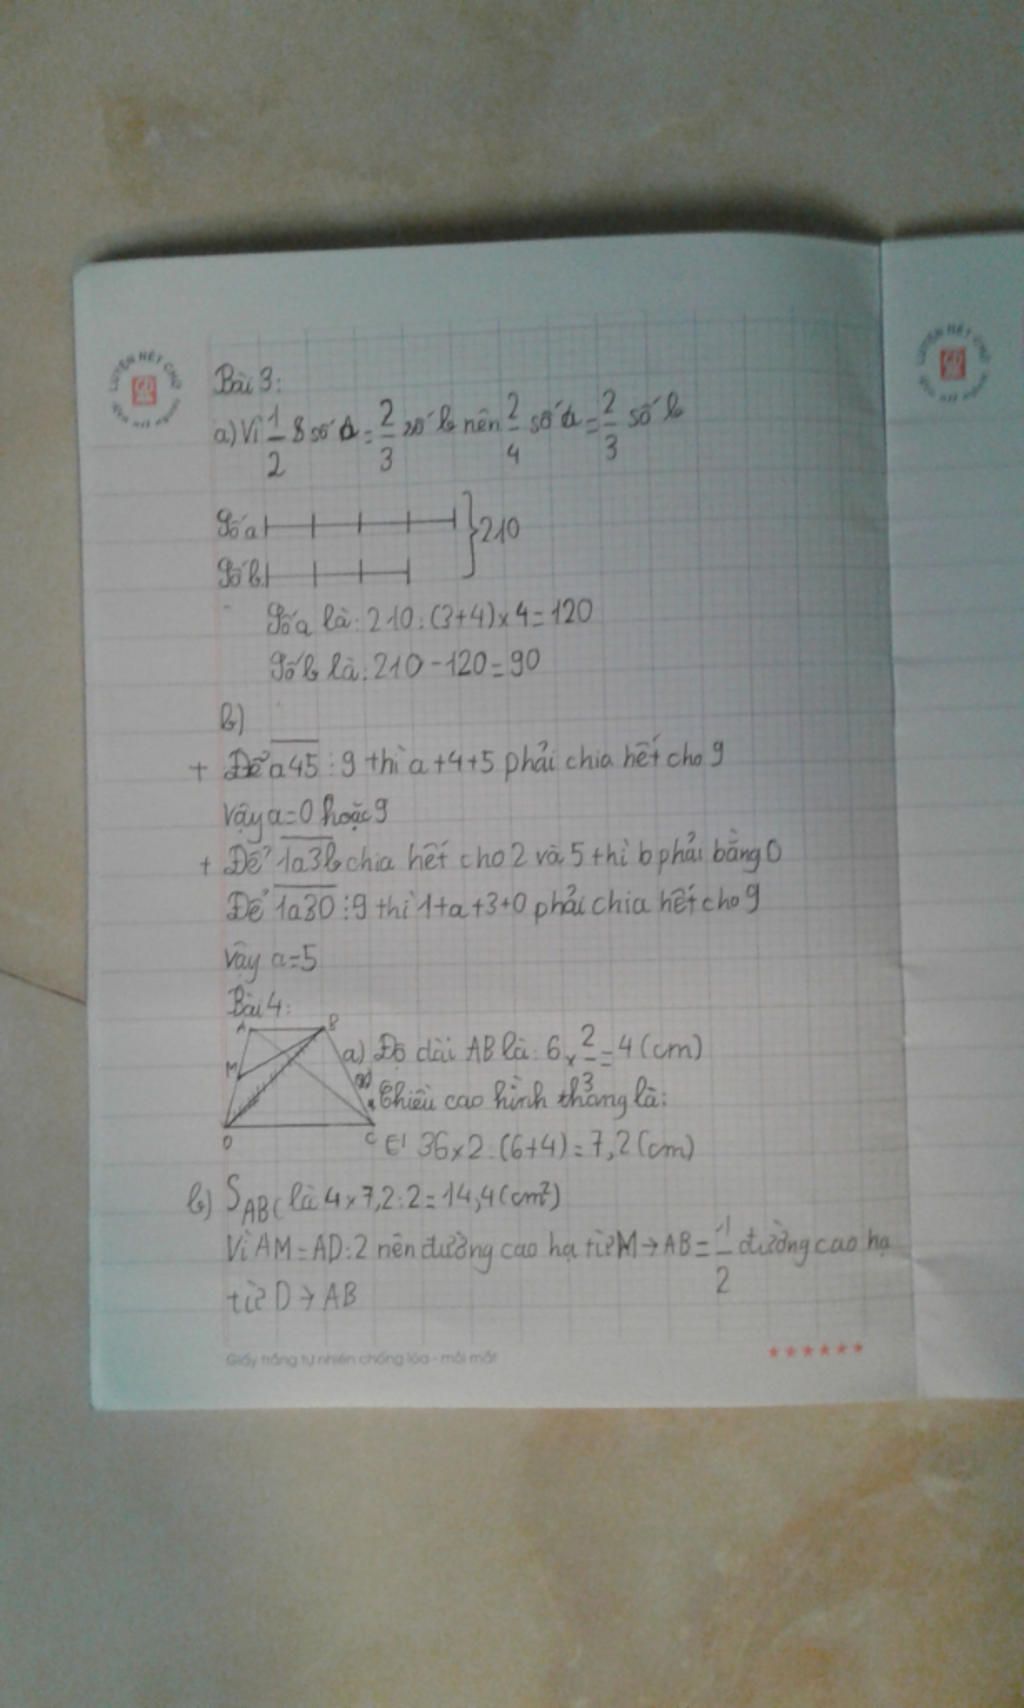 LUYỆN NÉT CHỮ
Bài 3:
a) Vì 1/2 số a = 2/3 số b nên 2/4 số a = 2/3 số b
Số a } 210
Số b
Số a là: 210 : (3+4) x 4 = 120
Số b là: 210 - 120 = 90
b)
+ Để a45 ⋮ 9 thì a+4+5 phải chia hết cho 9
Vậy a=0 hoặc 9
+ Để 1a3b chia hết cho 2 và 5 thì b phải bằng 0
Để 1a30 ⋮ 9 thì 1+a+3+0 phải chia hết cho 9
Vậy a=5
Bài 4:
A B
M
D C
a) Độ dài AB là: 6 x 2/3 = 4 (cm)
Chiều cao hình thang là:
36 x 2 : (6+4) = 7,2 (cm)
b) S ABC là 4 x 7,2 : 2 = 14,4 (cm²)
Vì AM = AD : 2 nên đường cao hạ từ M → AB = 1/2 đường cao hạ
từ D → AB
Giấy trắng tự nhiên chống lóa - mỏi mắt